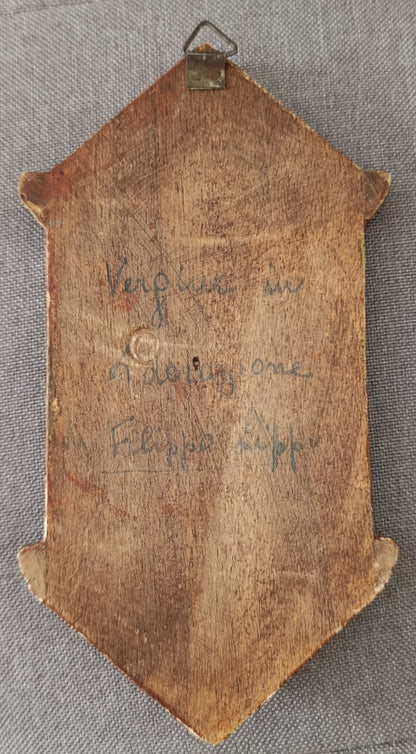 Vergine in
Adorazione
Filippo Lippi